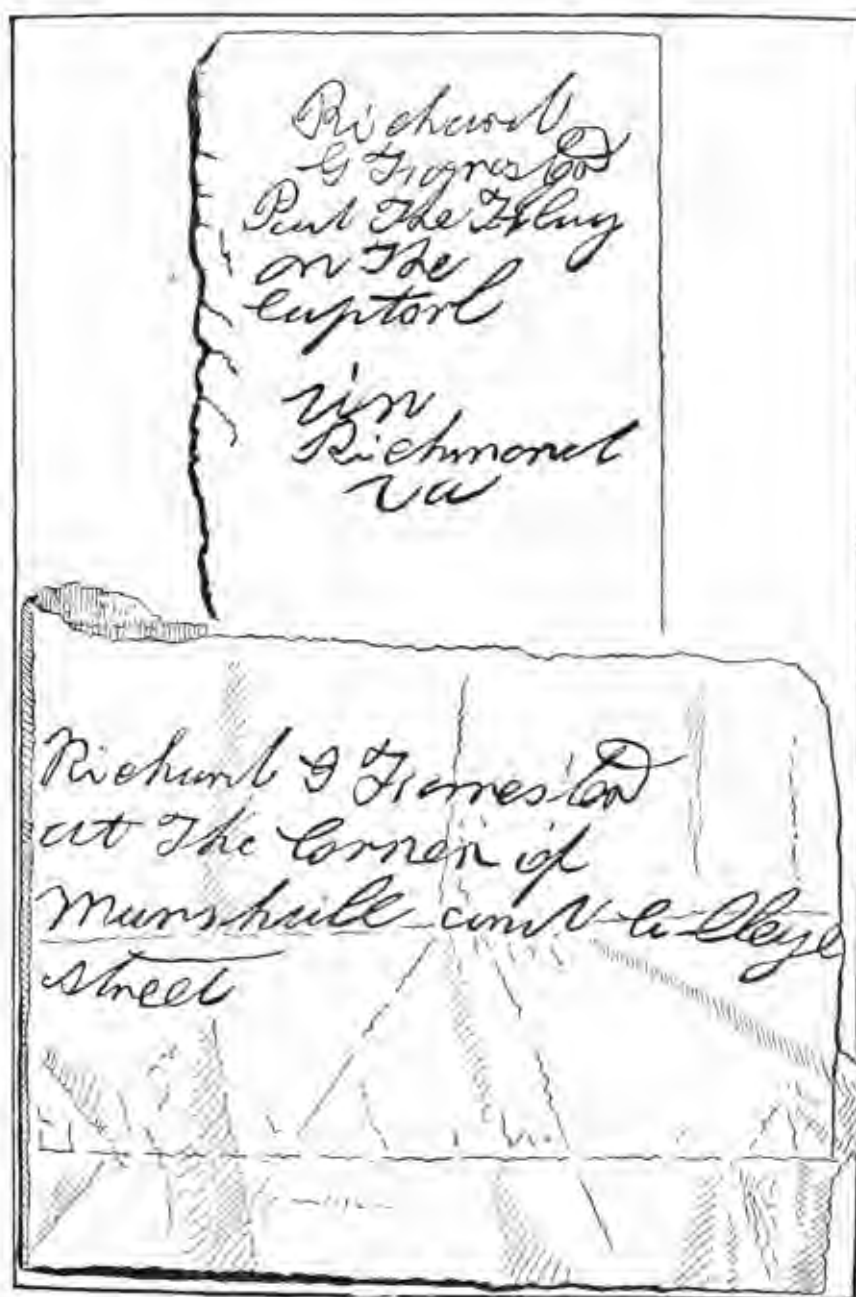 Richard
G
Put The Flag
on The
Captorl
in
Richmond
va
Richard G
at The Corner of
Marshall and College
street